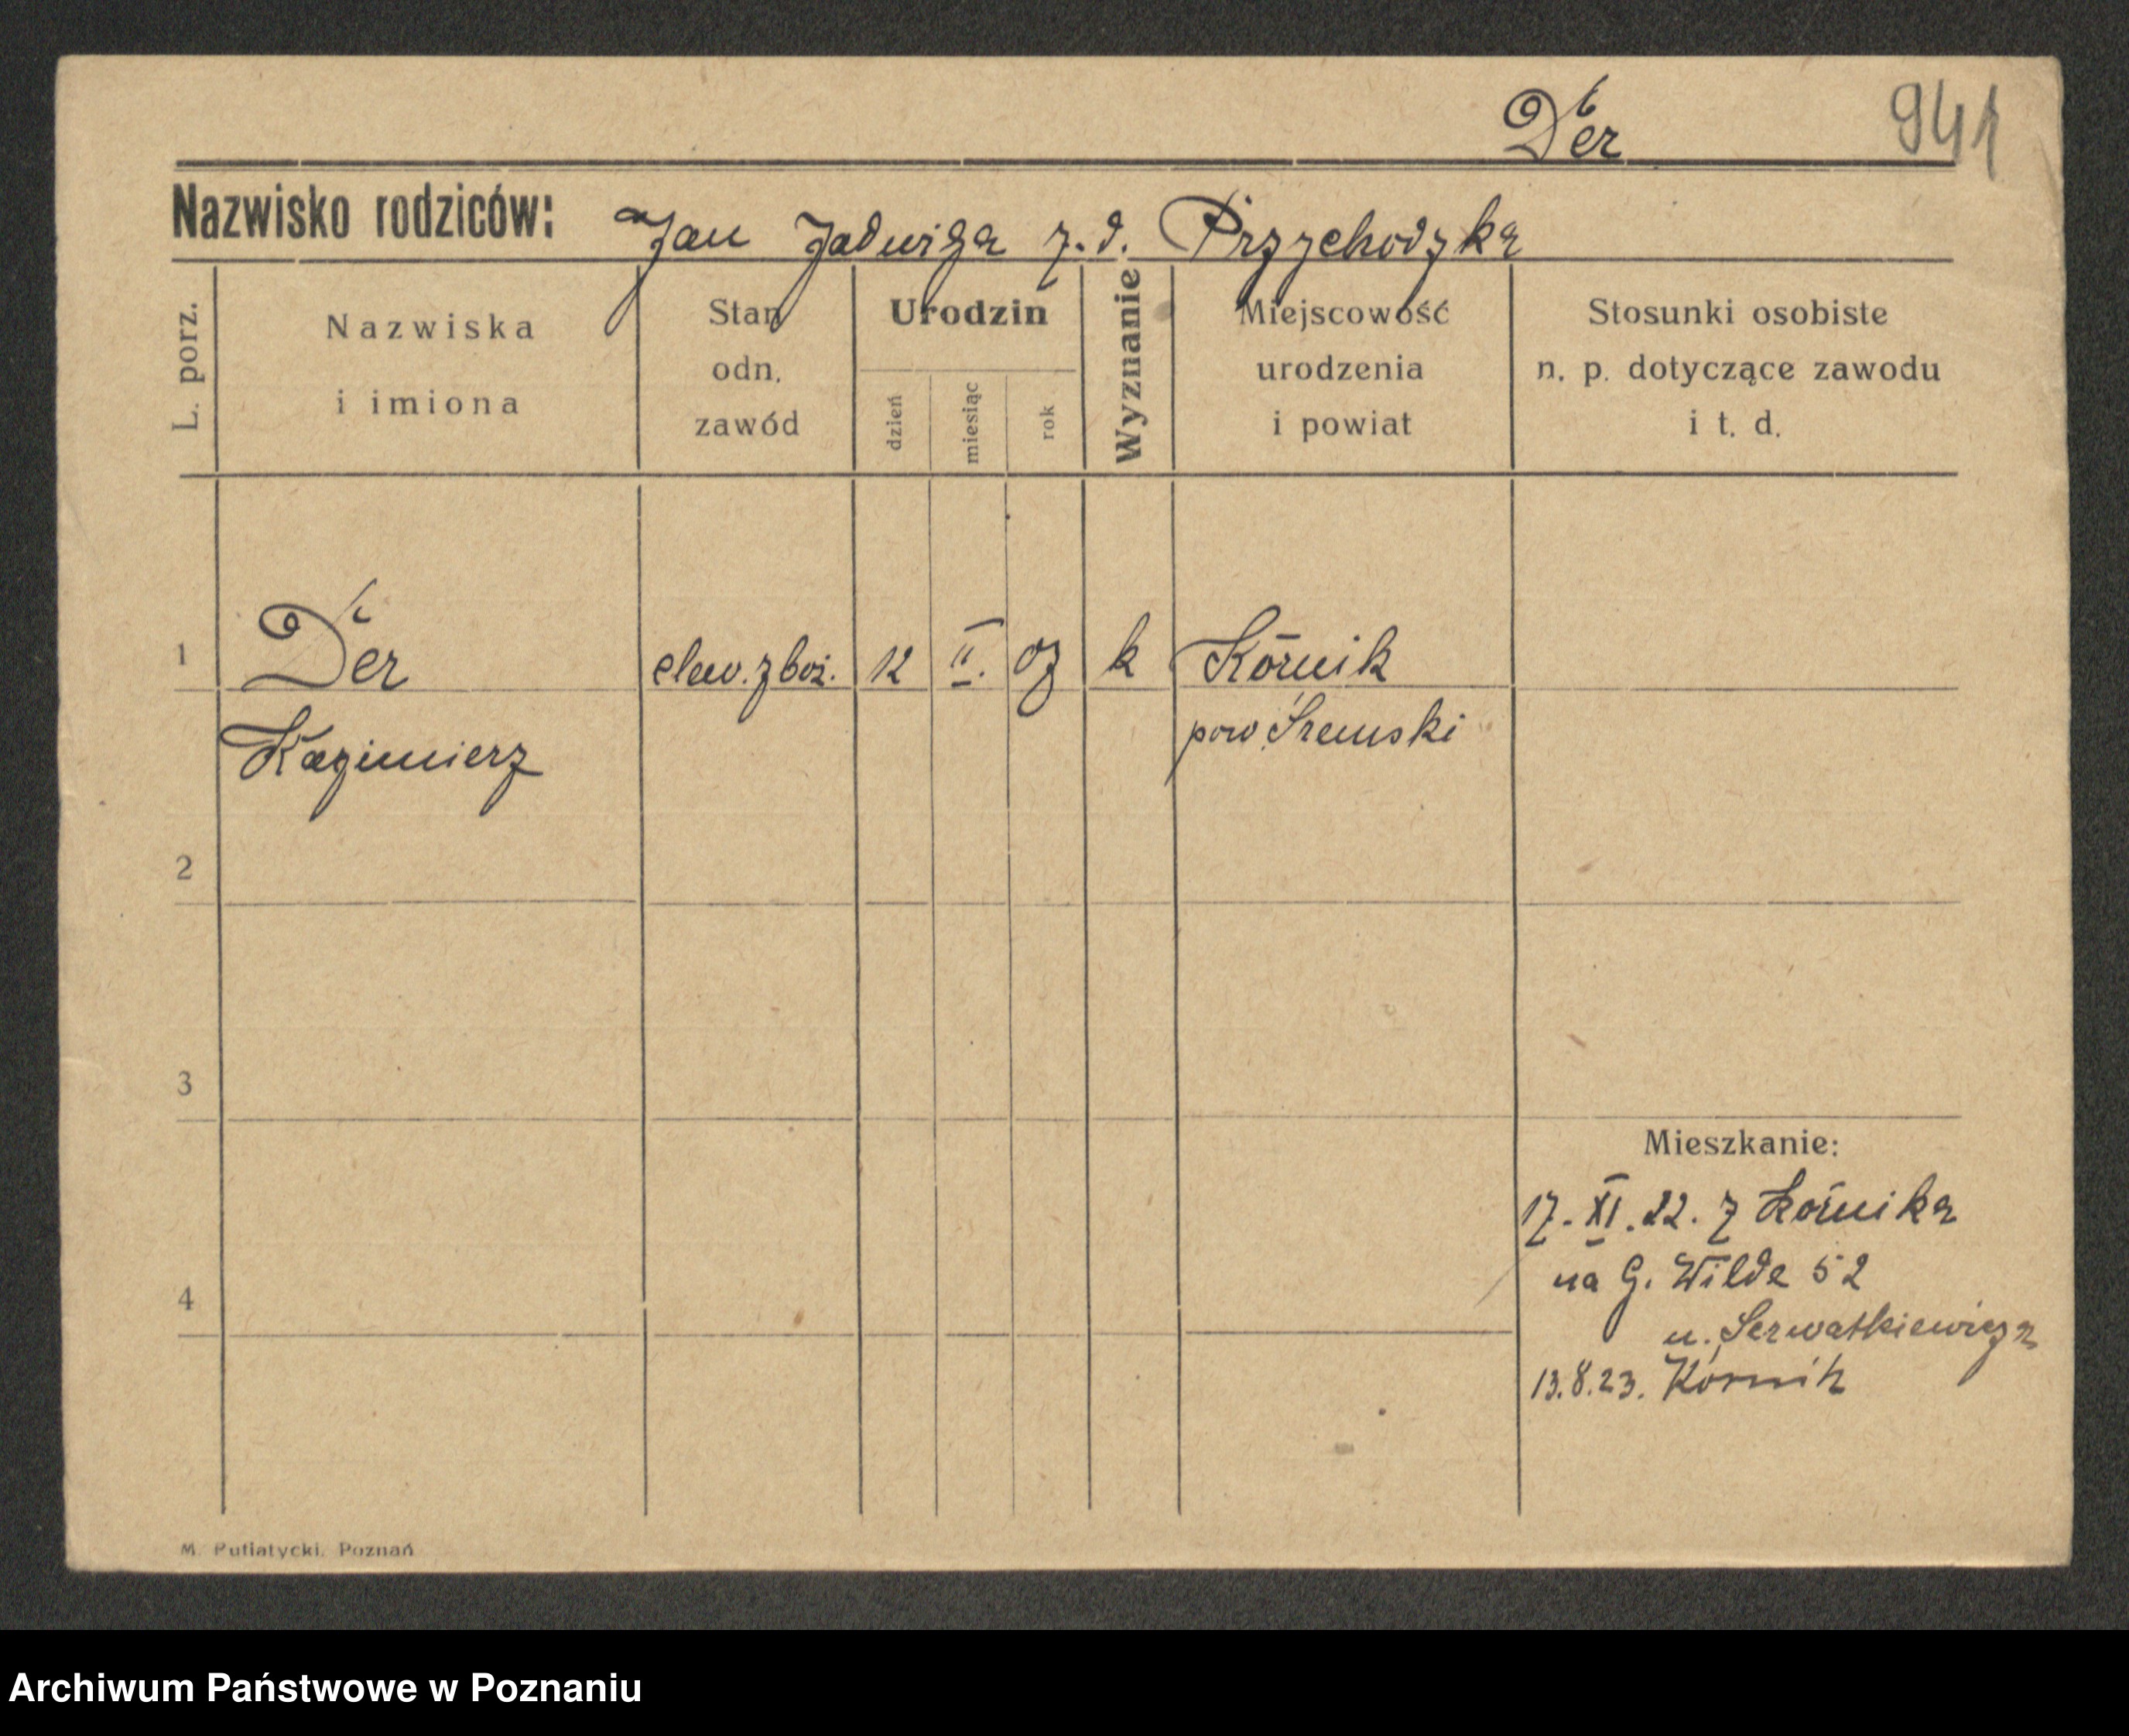 Der 941
Nazwisko rodziców: Jan Jadwiga z. d. Przychodzka
L. porz.
Nazwiska
i imiona
Stan
odn.
zawód
Urodzin
dzień
miesiąc
rok
Wyznanie
Miejscowość
urodzenia
i powiat
Stosunki osobiste
n. p. dotyczące zawodu
i t. d.
1 Der elew. zboż. 12 II. 03 k Kórnik
Kazimierz pow. Śremski
2
3
Mieszkanie:
17. XI. 22. z Kórnika
4 na G. Wilde 52
u. Serwatkiewicza
13.8.23. Kórnik
M. Putiatycki, Poznań
Archiwum Państwowe w Poznaniu